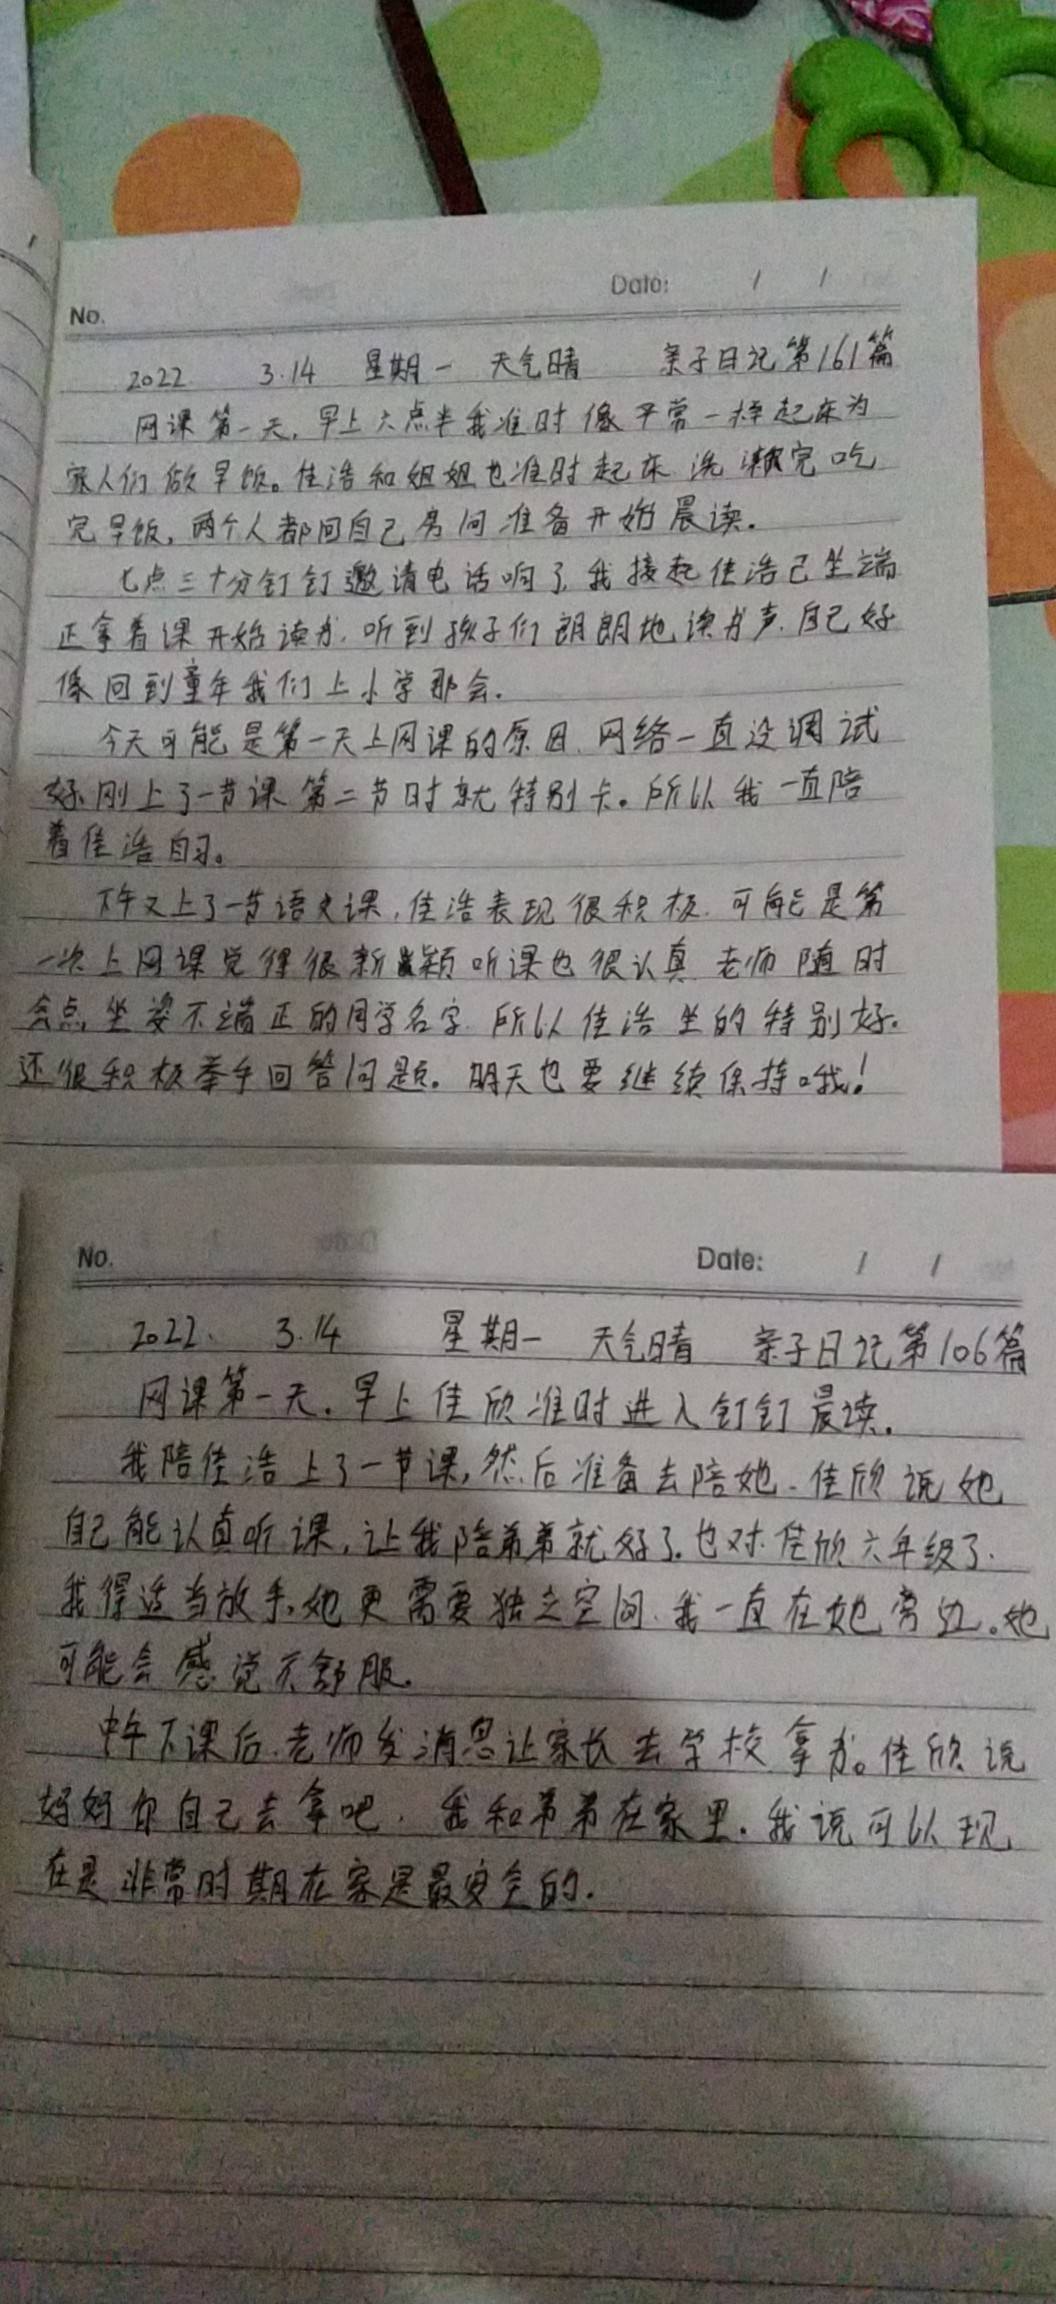 No.
Date: / /
2022 3.14 星期一 天气晴 亲子日记第161篇
网课第一天,早上六点半我准时像平常一样起床为
家人们做早饭。佳浩和姐姐也准时起床洗漱完吃
完早饭,两个人都回自己房间准备开始晨读.
七点三十分钉钉邀请电话响了,我接起佳浩已坐端
正拿着课开始读书.听到孩子们朗朗地读书声.自己好
像回到童年我们上小学那会.
今天可能是第一天上网课的原因.网络一直没调试
好.刚上了一节课第二节时就特别卡。所以我一直陪
着佳浩自习。
下午又上了一节语文课,佳浩表现很积极.可能是第
一次上网课觉得很新颖听课也很认真.老师随时
会点坐姿不端正的同学名字.所以佳浩坐的特别好.
还很积极举手回答问题.明天也要继续保持哦!
No.
Date: / /
2022. 3.14 星期一 天气晴 亲子日记第106篇
网课第一天.早上佳欣准时进入钉钉晨读.
我陪佳浩上了一节课,然后准备去陪她.佳欣说她
自己能认真听课,让我陪弟弟就好了.也对.佳欣六年级了.
我得适当放手,她更需要独立空间.我一直在她旁边。她
可能会感觉不舒服.
中午下课后.老师发消息让家长去学校拿书。佳欣说
妈妈你自己去拿吧.我和弟弟在家里.我说可以现
在是非常时期在家是最安全的.